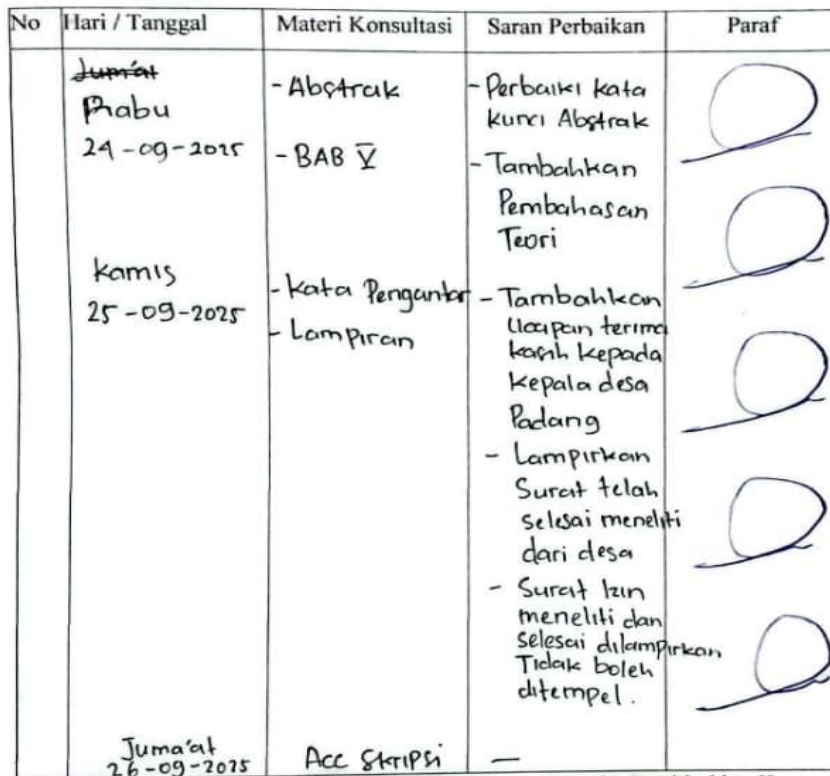 No Hari / Tanggal Materi Konsultasi Saran Perbaikan Paraf
Jum'at
Rabu
24-09-2025
- Abstrak
- BAB V
- Perbaiki kata
kunci Abstrak
- Tambahkan
Pembahasan
Teori
Kamis
25-09-2025
- Kata Pengantar
- Lampiran
- Tambahkan
Ucapan terima
kasih kepada
kepala desa
Padang
- Lampirkan
Surat telah
selesai meneliti
dari desa
- Surat Izin
meneliti dan
selesai dilampirkan
Tidak boleh
ditempel.
Juma'at
26-09-2025
Acc Skripsi
—